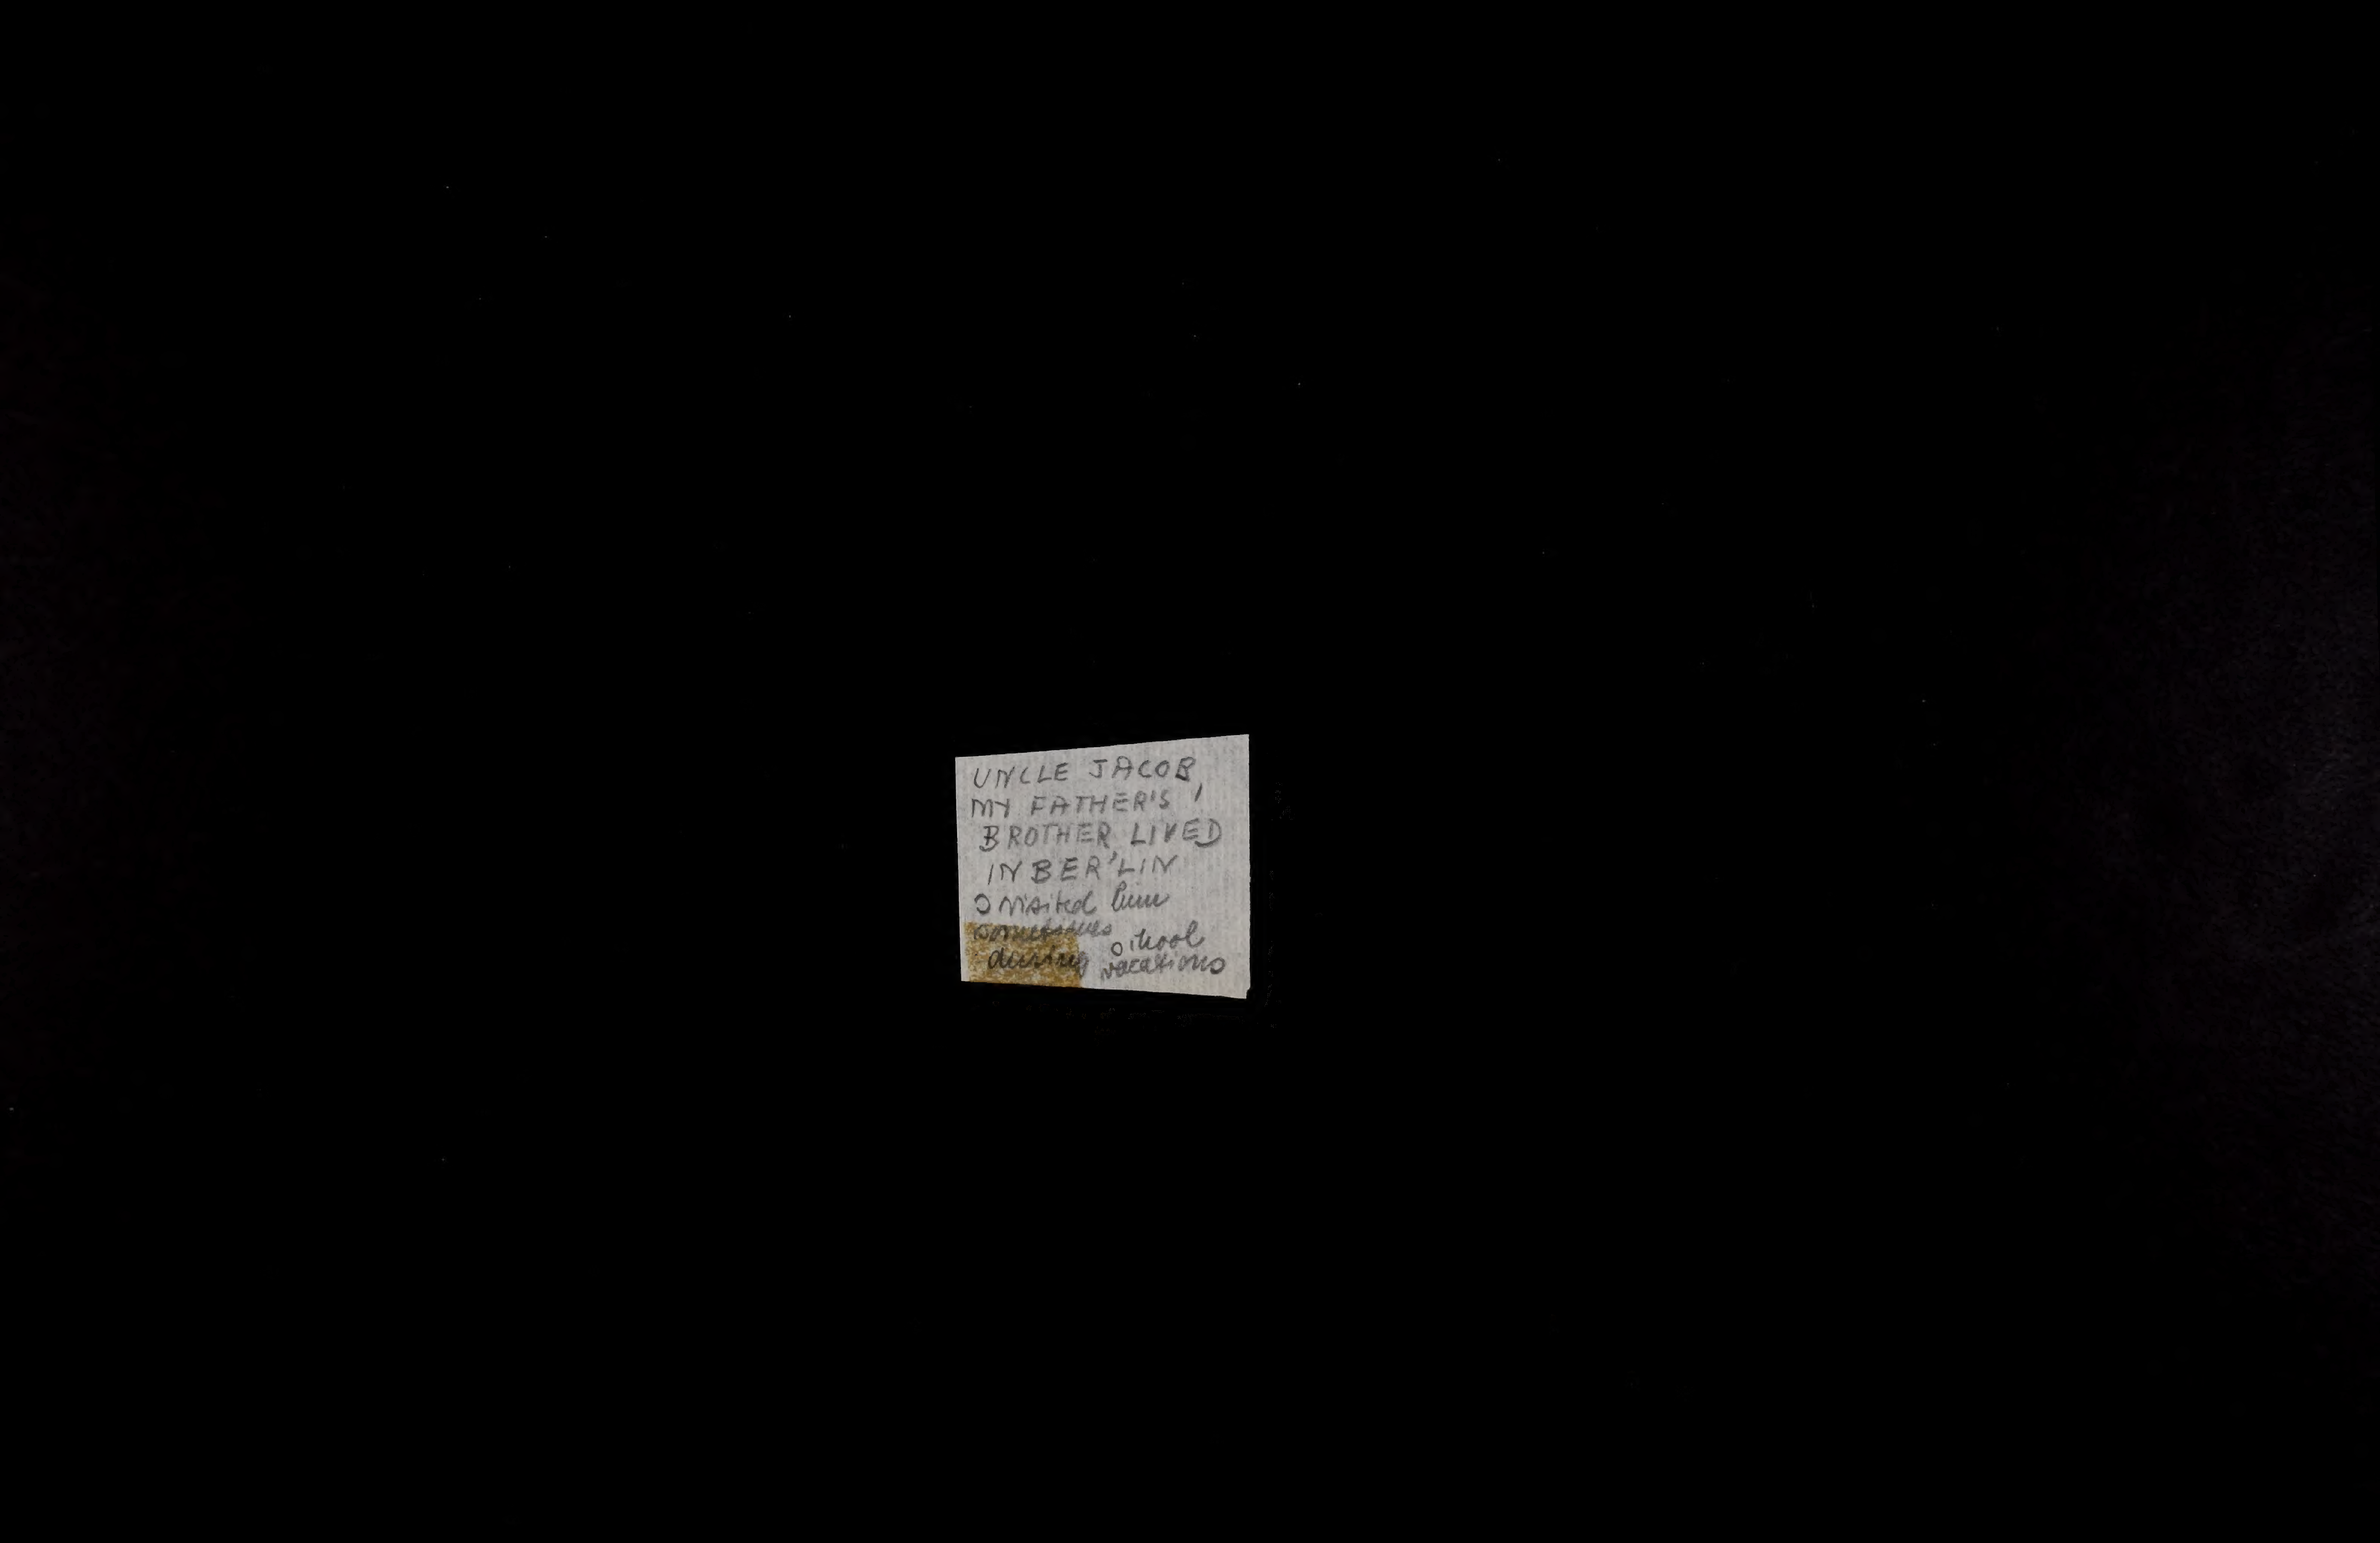 UNCLE JACOB,
MY FATHER'S
BROTHER, LIVED
IN BERLIN
I visited him
sometimes
during school
vacations